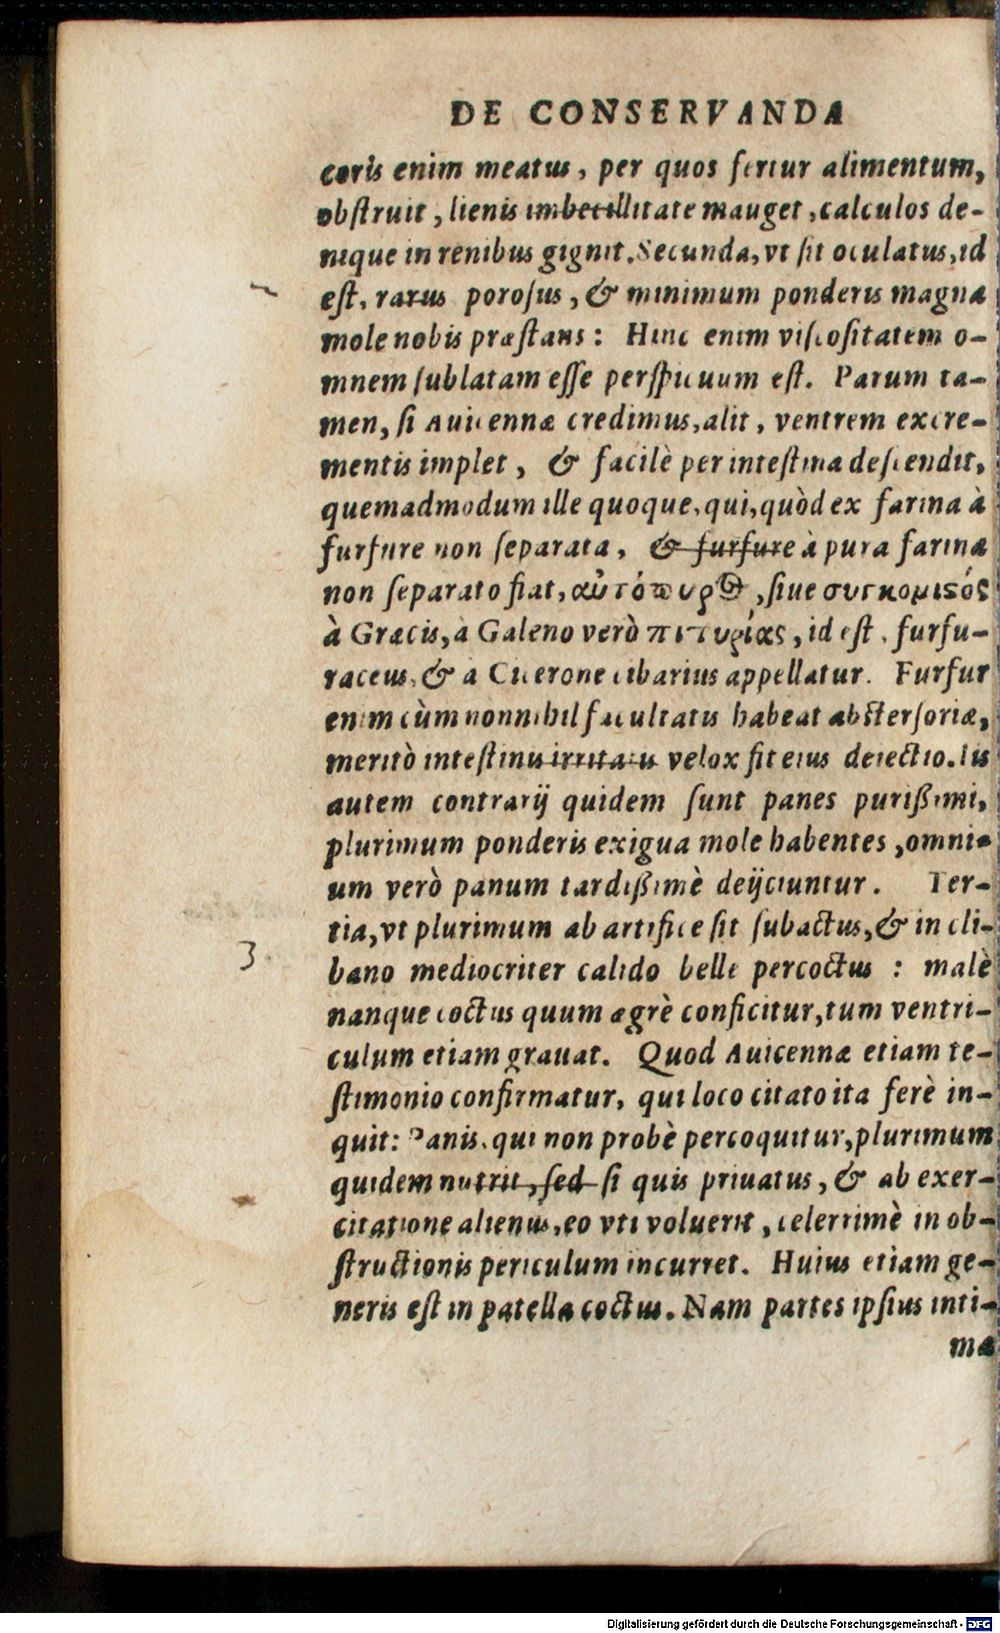 DE CONSERVANDA
coris enim meatus, per quos fertur alimentum,
obstruit, lienis imbecillitatē auget, calculos de-
nique in renibus gignit. Secunda, vt sit oculatus, id
est, rarus porosus, & minimum ponderis magna
mole nobis præstans: Hinc enim viscositatem o-
mnem sublatam esse perspicuum est. Parum ta-
men, si Auicennæ credimus, alit, ventrem excre-
mentis implet, & facilè per intestina descendit,
quemadmodum ille quoque, qui, quòd ex farina à
furfure non separata, & furfure à pura farina
non separato fiat, αὐτόπυρος, siue συγκομιστός
à Græcis, à Galeno verò πιτυρίας, id est, furfu-
raceus, & a Cicerone cibarius appellatur. Furfur
enim cùm nonnihil facultatis habeat abstersoriæ,
meritò intestinis irritatis velox fit eius deiectio. Iis
autem contrarij quidem sunt panes purißimi,
plurimum ponderis exigua mole habentes, omni-
um verò panum tardißimè deijciuntur. Ter-
tia, vt plurimum ab artifice sit subactus, & in cli-
3
bano mediocriter calido belle percoctus: malè
nanque coctus quum ægrè conficitur, tum ventri-
culum etiam grauat. Quod Auicennæ etiam te-
stimonio confirmatur, qui loco citato ita ferè in-
quit: Panis, qui non probè percoquitur, plurimum
quidem nutrit, sed si quis priuatus, & ab exer-
citatione alienus, eo vti voluerit, celerrimè in ob-
structionis periculum incurret. Huius etiam ge-
neris est in patella coctus. Nam partes ipsius inti-
mæ
Digitalisierung gefördert durch die Deutsche Forschungsgemeinschaft - DFG